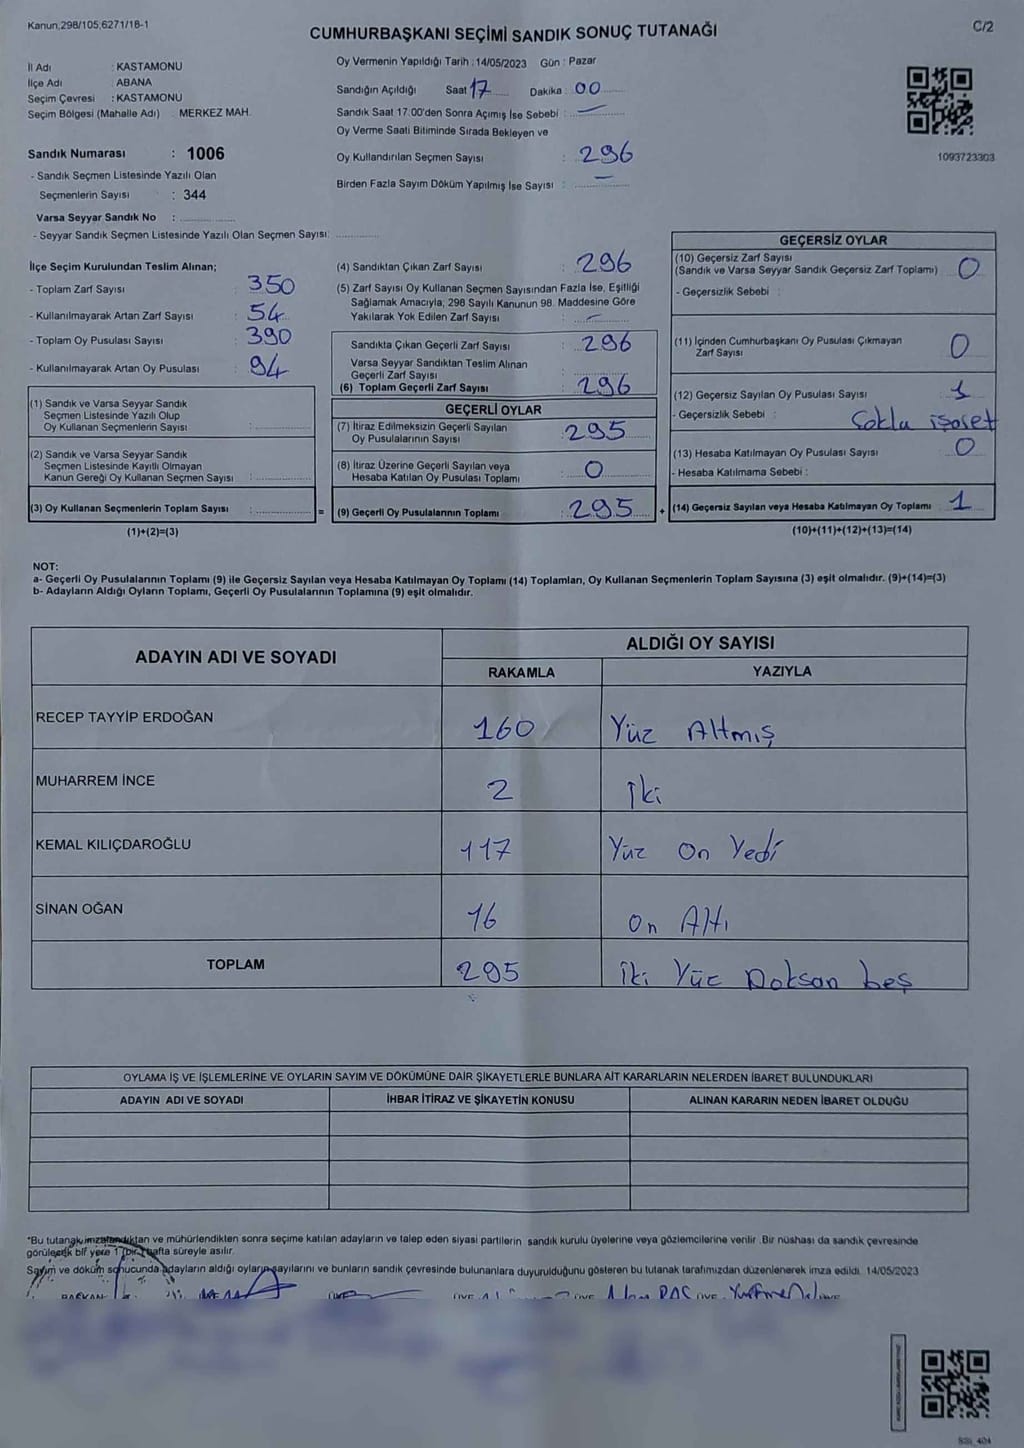 Kanun,298/105,6271/18-1
C/2
CUMHURBAŞKANI SEÇİMİ SANDIK SONUÇ TUTANAĞI
İl Adı : KASTAMONU
İlçe Adı : ABANA
Seçim Çevresi : KASTAMONU
Seçim Bölgesi (Mahalle Adı) : MERKEZ MAH.
Sandık Numarası : 1006
- Sandık Seçmen Listesinde Yazılı Olan
Seçmenlerin Sayısı : 344
Varsa Seyyar Sandık No :
- Seyyar Sandık Seçmen Listesinde Yazılı Olan Seçmen Sayısı:
Oy Vermenin Yapıldığı Tarih : 14/05/2023 Gün : Pazar
Sandığın Açıldığı Saat 17 Dakika : 00
Sandık Saat 17:00'den Sonra Açımış İse Sebebi : —
Oy Verme Saati Bitiminde Sırada Bekleyen ve
Oy Kullandırılan Seçmen Sayısı : 296
Birden Fazla Sayım Döküm Yapılmış İse Sayısı : —
1093723303
İlçe Seçim Kurulundan Teslim Alınan;
- Toplam Zarf Sayısı : 350
- Kullanılmayarak Artan Zarf Sayısı : 54
- Toplam Oy Pusulası Sayısı : 390
- Kullanılmayarak Artan Oy Pusulası : 94
(1) Sandık ve Varsa Seyyar Sandık
Seçmen Listesinde Yazılı Olup
Oy Kullanan Seçmenlerin Sayısı :
(2) Sandık ve Varsa Seyyar Sandık
Seçmen Listesinde Kayıtlı Olmayan
Kanun Gereği Oy Kullanan Seçmen Sayısı :
(3) Oy Kullanan Seçmenlerin Toplam Sayısı : =
(1)+(2)=(3)
(4) Sandıktan Çıkan Zarf Sayısı : 296
(5) Zarf Sayısı Oy Kullanan Seçmen Sayısından Fazla İse, Eşitliği
Sağlamak Amacıyla, 298 Sayılı Kanunun 98. Maddesine Göre
Yakılarak Yok Edilen Zarf Sayısı : —
Sandıkta Çıkan Geçerli Zarf Sayısı : 296
Varsa Seyyar Sandıktan Teslim Alınan
Geçerli Zarf Sayısı :
(6) Toplam Geçerli Zarf Sayısı : 296
GEÇERLİ OYLAR
(7) İtiraz Edilmeksizin Geçerli Sayılan
Oy Pusulalarının Sayısı : 295
(8) İtiraz Üzerine Geçerli Sayılan veya
Hesaba Katılan Oy Pusulası Toplamı : 0
(9) Geçerli Oy Pusulalarının Toplamı : 295 +
GEÇERSİZ OYLAR
(10) Geçersiz Zarf Sayısı
(Sandık ve Varsa Seyyar Sandık Geçersiz Zarf Toplamı) : 0
- Geçersizlik Sebebi :
(11) İçinden Cumhurbaşkanı Oy Pusulası Çıkmayan
Zarf Sayısı : 0
(12) Geçersiz Sayılan Oy Pusulası Sayısı : 1
- Geçersizlik Sebebi : Çoklu işaret
(13) Hesaba Katılmayan Oy Pusulası Sayısı : 0
- Hesaba Katılmama Sebebi :
(14) Geçersiz Sayılan veya Hesaba Katılmayan Oy Toplamı : 1
(10)+(11)+(12)+(13)=(14)
NOT:
a- Geçerli Oy Pusulalarının Toplamı (9) ile Geçersiz Sayılan veya Hesaba Katılmayan Oy Toplamı (14) Toplamları, Oy Kullanan Seçmenlerin Toplam Sayısına (3) eşit olmalıdır. (9)+(14)=(3)
b- Adayların Aldığı Oyların Toplamı, Geçerli Oy Pusulalarının Toplamına (9) eşit olmalıdır.
ADAYIN ADI VE SOYADI
ALDIĞI OY SAYISI
RAKAMLA YAZIYLA
RECEP TAYYİP ERDOĞAN 160 Yüz Altmış
MUHARREM İNCE 2 İki
KEMAL KILIÇDAROĞLU 117 Yüz On Yedi
SİNAN OĞAN 16 On Altı
TOPLAM 295 İki Yüz Doksan beş
OYLAMA İŞ VE İŞLEMLERİNE VE OYLARIN SAYIM VE DÖKÜMÜNE DAİR ŞİKAYETLERLE BUNLARA AİT KARARLARIN NELERDEN İBARET BULUNDUKLARI
ADAYIN ADI VE SOYADI İHBAR İTİRAZ VE ŞİKAYETİN KONUSU ALINAN KARARIN NEDEN İBARET OLDUĞU
*Bu tutanak imzalandıktan ve mühürlendikten sonra seçime katılan adayların ve talep eden siyasi partilerin sandık kurulu üyelerine veya gözlemcilerine verilir. Bir nüshası da sandık çevresinde
görülecek bir yere 1 (bir) hafta süreyle asılır.
Sayım ve döküm sonucunda adayların aldığı oyların sayılarını ve bunların sandık çevresinde bulunanlara duyurulduğunu gösteren bu tutanak tarafımızdan düzenlenerek imza edildi. 14/05/2023
BAŞKAN